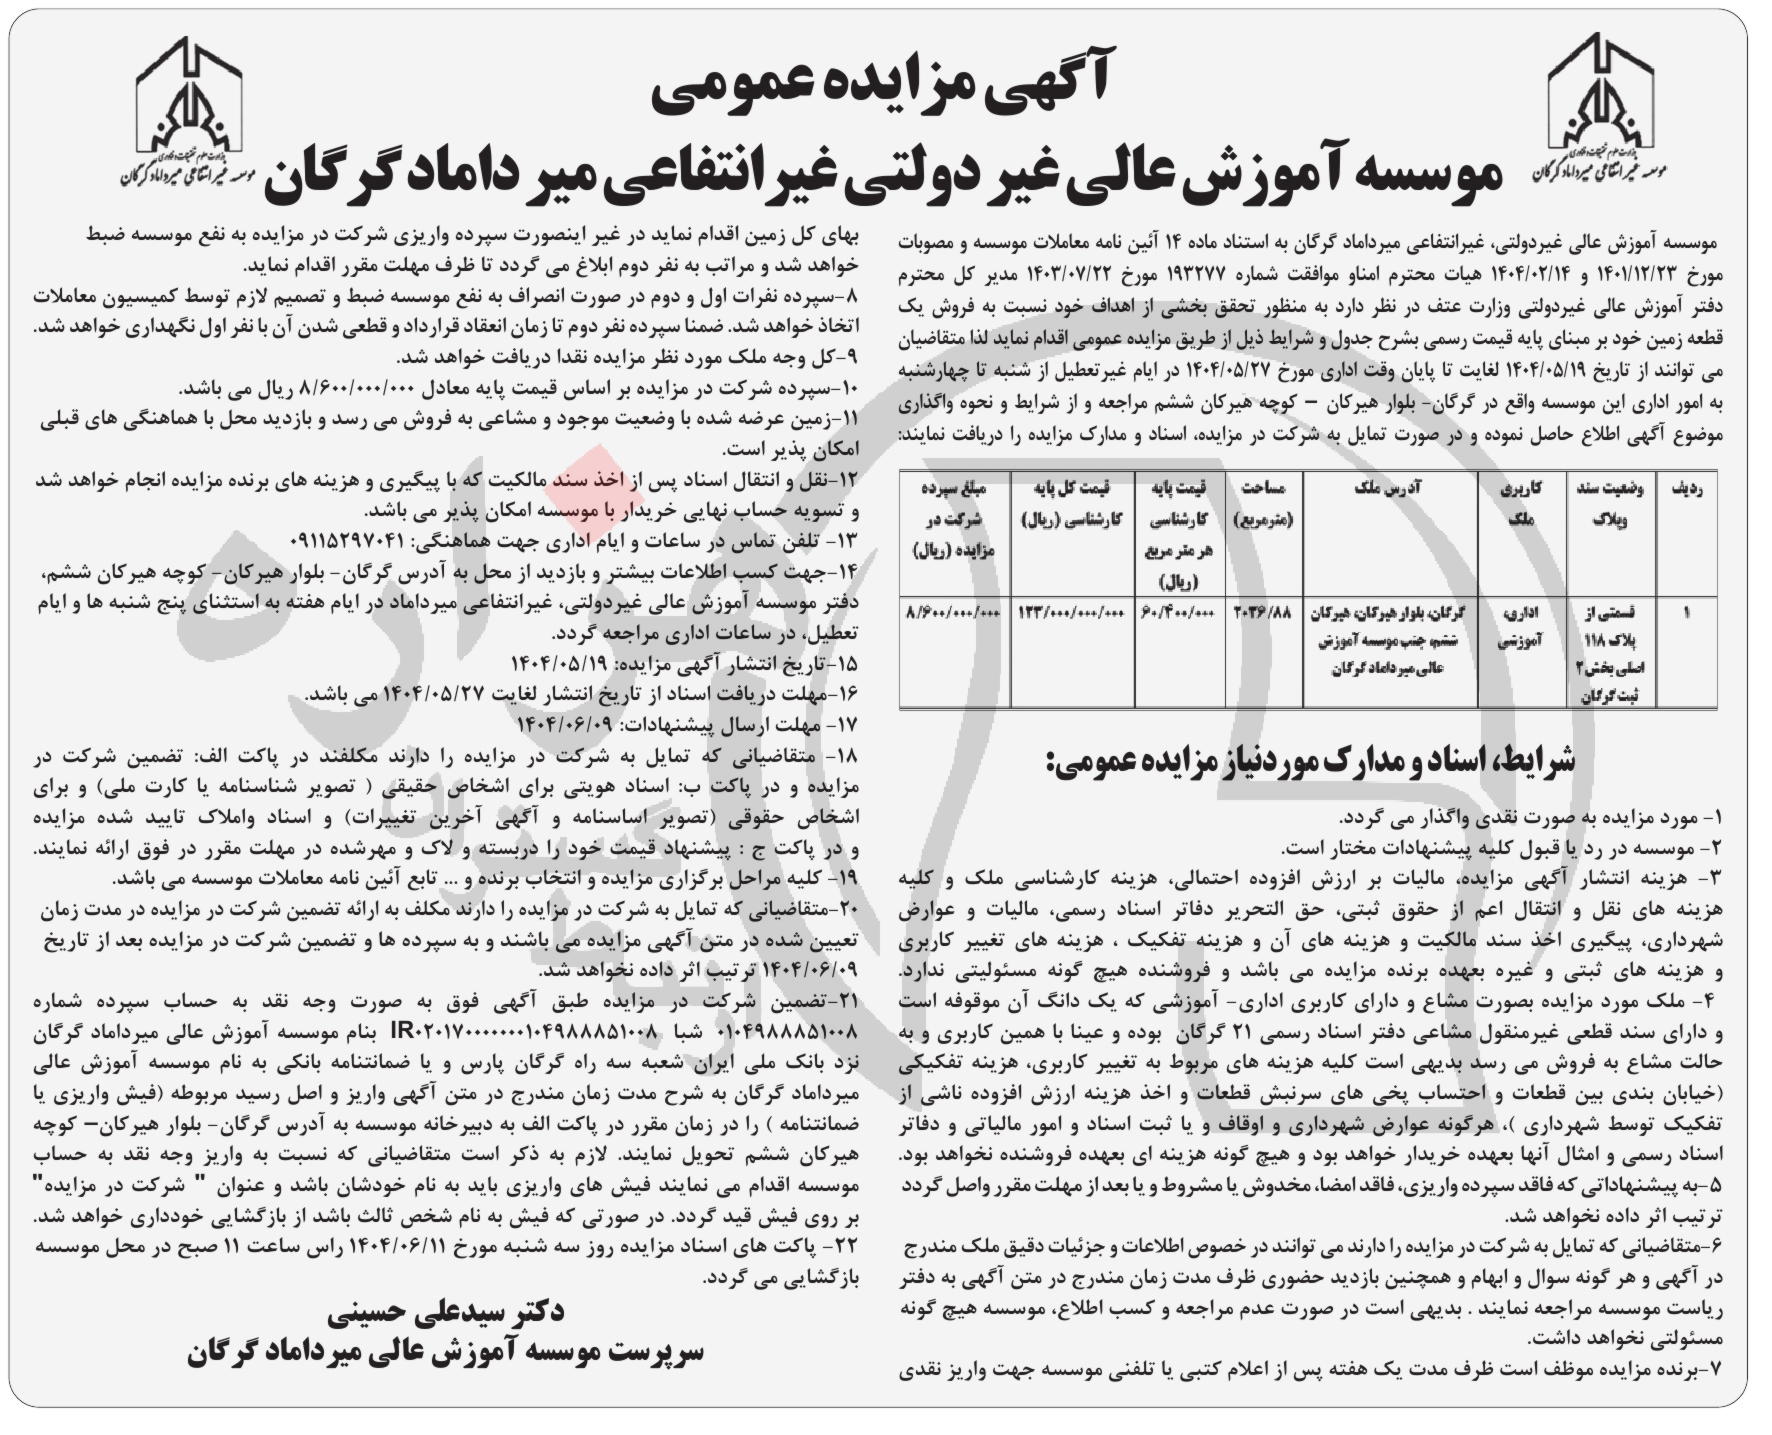 آگهی مزایده عمومی
موسسه آموزش عالی غیر دولتی غیرانتفاعی میر داماد گرگان
وزارت علوم تحقیقات و فناوری
موسسه غیر انتفاعی میرداماد گرگان
وزارت علوم تحقیقات و فناوری
موسسه غیر انتفاعی میرداماد گرگان
موسسه آموزش عالی غیردولتی، غیرانتفاعی میرداماد گرگان به استناد ماده ۱۴ آئین نامه معاملات موسسه و مصوبات
مورخ ۱۴۰۱/۱۲/۲۳ و ۱۴۰۴/۰۲/۱۴ هیات محترم امناو موافقت شماره ۱۹۳۲۷۷ مورخ ۱۴۰۳/۰۷/۲۲ مدیر کل محترم
دفتر آموزش عالی غیردولتی وزارت عتف در نظر دارد به منظور تحقق بخشی از اهداف خود نسبت به فروش یک
قطعه زمین خود بر مبنای پایه قیمت رسمی بشرح جدول و شرایط ذیل از طریق مزایده عمومی اقدام نماید لذا متقاضیان
می توانند از تاریخ ۱۴۰۴/۰۵/۱۹ لغایت تا پایان وقت اداری مورخ ۱۴۰۴/۰۵/۲۷ در ایام غیرتعطیل از شنبه تا چهارشنبه
به امور اداری این موسسه واقع در گرگان- بلوار هیرکان – کوچه هیرکان ششم مراجعه و از شرایط و نحوه واگذاری
موضوع آگهی اطلاع حاصل نموده و در صورت تمایل به شرکت در مزایده، اسناد و مدارک مزایده را دریافت نمایند:
ردیف | وضعیت سند وپلاک | کاربری ملک | آدرس ملک | مساحت (مترمربع) | قیمت پایه کارشناسی هر متر مربع (ریال) | قیمت کل پایه کارشناسی (ریال) | مبلغ سپرده شرکت در مزایده (ریال)
۱ | قسمتی از پلاک ۱۱۸ اصلی بخش ۲ ثبت گرگان | اداری، آموزشی | گرگان، بلوار هیرکان، هیرکان ششم، جنب موسسه آموزش عالی میرداماد گرگان | ۲۰۳۶/۸۸ | ۶۰/۴۰۰/۰۰۰ | ۱۲۳/۰۰۰/۰۰۰/۰۰۰ | ۸/۶۰۰/۰۰۰/۰۰۰
شرایط، اسناد و مدارک موردنیاز مزایده عمومی:
۱- مورد مزایده به صورت نقدی واگذار می گردد.
۲- موسسه در رد یا قبول کلیه پیشنهادات مختار است.
۳- هزینه انتشار آگهی مزایده، مالیات بر ارزش افزوده احتمالی، هزینه کارشناسی ملک و کلیه
هزینه های نقل و انتقال اعم از حقوق ثبتی، حق التحریر دفاتر اسناد رسمی، مالیات و عوارض
شهرداری، پیگیری اخذ سند مالکیت و هزینه های آن و هزینه تفکیک ، هزینه های تغییر کاربری
و هزینه های ثبتی و غیره بعهده برنده مزایده می باشد و فروشنده هیچ گونه مسئولیتی ندارد.
۴- ملک مورد مزایده بصورت مشاع و دارای کاربری اداری- آموزشی که یک دانگ آن موقوفه است
و دارای سند قطعی غیرمنقول مشاعی دفتر اسناد رسمی ۲۱ گرگان بوده و عینا با همین کاربری و به
حالت مشاع به فروش می رسد بدیهی است کلیه هزینه های مربوط به تغییر کاربری، هزینه تفکیکی
(خیابان بندی بین قطعات و احتساب پخی های سرنبش قطعات و اخذ هزینه ارزش افزوده ناشی از
تفکیک توسط شهرداری )، هرگونه عوارض شهرداری و اوقاف و یا ثبت اسناد و امور مالیاتی و دفاتر
اسناد رسمی و امثال آنها بعهده خریدار خواهد بود و هیچ گونه هزینه ای بعهده فروشنده نخواهد بود.
۵-به پیشنهاداتی که فاقد سپرده واریزی، فاقد امضا، مخدوش یا مشروط و یا بعد از مهلت مقرر واصل گردد
ترتیب اثر داده نخواهد شد.
۶-متقاضیانی که تمایل به شرکت در مزایده را دارند می توانند در خصوص اطلاعات و جزئیات دقیق ملک مندرج
در آگهی و هر گونه سوال و ابهام و همچنین بازدید حضوری ظرف مدت زمان مندرج در متن آگهی به دفتر
ریاست موسسه مراجعه نمایند . بدیهی است در صورت عدم مراجعه و کسب اطلاع، موسسه هیچ گونه
مسئولتی نخواهد داشت.
۷-برنده مزایده موظف است ظرف مدت یک هفته پس از اعلام کتبی یا تلفنی موسسه جهت واریز نقدی
بهای کل زمین اقدام نماید در غیر اینصورت سپرده واریزی شرکت در مزایده به نفع موسسه ضبط
خواهد شد و مراتب به نفر دوم ابلاغ می گردد تا ظرف مهلت مقرر اقدام نماید.
۸-سپرده نفرات اول و دوم در صورت انصراف به نفع موسسه ضبط و تصمیم لازم توسط کمیسیون معاملات
اتخاذ خواهد شد. ضمنا سپرده نفر دوم تا زمان انعقاد قرارداد و قطعی شدن آن با نفر اول نگهداری خواهد شد.
۹-کل وجه ملک مورد نظر مزایده نقدا دریافت خواهد شد.
۱۰-سپرده شرکت در مزایده بر اساس قیمت پایه معادل ۸/۶۰۰/۰۰۰/۰۰۰ ریال می باشد.
۱۱-زمین عرضه شده با وضعیت موجود و مشاعی به فروش می رسد و بازدید محل با هماهنگی های قبلی
امکان پذیر است.
۱۲-نقل و انتقال اسناد پس از اخذ سند مالکیت که با پیگیری و هزینه های برنده مزایده انجام خواهد شد
و تسویه حساب نهایی خریدار با موسسه امکان پذیر می باشد.
۱۳- تلفن تماس در ساعات و ایام اداری جهت هماهنگی: ۰۹۱۱۵۲۹۷۰۴۱
۱۴-جهت کسب اطلاعات بیشتر و بازدید از محل به آدرس گرگان- بلوار هیرکان- کوچه هیرکان ششم،
دفتر موسسه آموزش عالی غیردولتی، غیرانتفاعی میرداماد در ایام هفته به استثنای پنج شنبه ها و ایام
تعطیل، در ساعات اداری مراجعه گردد.
۱۵-تاریخ انتشار آگهی مزایده: ۱۴۰۴/۰۵/۱۹
۱۶-مهلت دریافت اسناد از تاریخ انتشار لغایت ۱۴۰۴/۰۵/۲۷ می باشد.
۱۷- مهلت ارسال پیشنهادات: ۱۴۰۴/۰۶/۰۹
۱۸- متقاضیانی که تمایل به شرکت در مزایده را دارند مکلفند در پاکت الف: تضمین شرکت در
مزایده و در پاکت ب: اسناد هویتی برای اشخاص حقیقی ( تصویر شناسنامه یا کارت ملی) و برای
اشخاص حقوقی (تصویر اساسنامه و آگهی آخرین تغییرات) و اسناد واملاک تایید شده مزایده
و در پاکت ج : پیشنهاد قیمت خود را دربسته و لاک و مهرشده در مهلت مقرر در فوق ارائه نمایند.
۱۹- کلیه مراحل برگزاری مزایده و انتخاب برنده و ... تابع آئین نامه معاملات موسسه می باشد.
۲۰-متقاضیانی که تمایل به شرکت در مزایده را دارند مکلف به ارائه تضمین شرکت در مزایده در مدت زمان
تعیین شده در متن آگهی مزایده می باشند و به سپرده ها و تضمین شرکت در مزایده بعد از تاریخ
۱۴۰۴/۰۶/۰۹ ترتیب اثر داده نخواهد شد.
۲۱-تضمین شرکت در مزایده طبق آگهی فوق به صورت وجه نقد به حساب سپرده شماره
۰۱۰۴۹۸۸۸۵۱۰۰۸ شبا IR۰۲۰۱۷۰۰۰۰۰۰۰۱۰۴۹۸۸۸۵۱۰۰۸ بنام موسسه آموزش عالی میرداماد گرگان
نزد بانک ملی ایران شعبه سه راه گرگان پارس و یا ضمانتنامه بانکی به نام موسسه آموزش عالی
میرداماد گرگان به شرح مدت زمان مندرج در متن آگهی واریز و اصل رسید مربوطه (فیش واریزی یا
ضمانتنامه ) را در زمان مقرر در پاکت الف به دبیرخانه موسسه به آدرس گرگان- بلوار هیرکان– کوچه
هیرکان ششم تحویل نمایند. لازم به ذکر است متقاضیانی که نسبت به واریز وجه نقد به حساب
موسسه اقدام می نمایند فیش های واریزی باید به نام خودشان باشد و عنوان " شرکت در مزایده"
بر روی فیش قید گردد. در صورتی که فیش به نام شخص ثالث باشد از بازگشایی خودداری خواهد شد.
۲۲- پاکت های اسناد مزایده روز سه شنبه مورخ ۱۴۰۴/۰۶/۱۱ راس ساعت ۱۱ صبح در محل موسسه
بازگشایی می گردد.
دکتر سیدعلی حسینی
سرپرست موسسه آموزش عالی میرداماد گرگان
هزاره